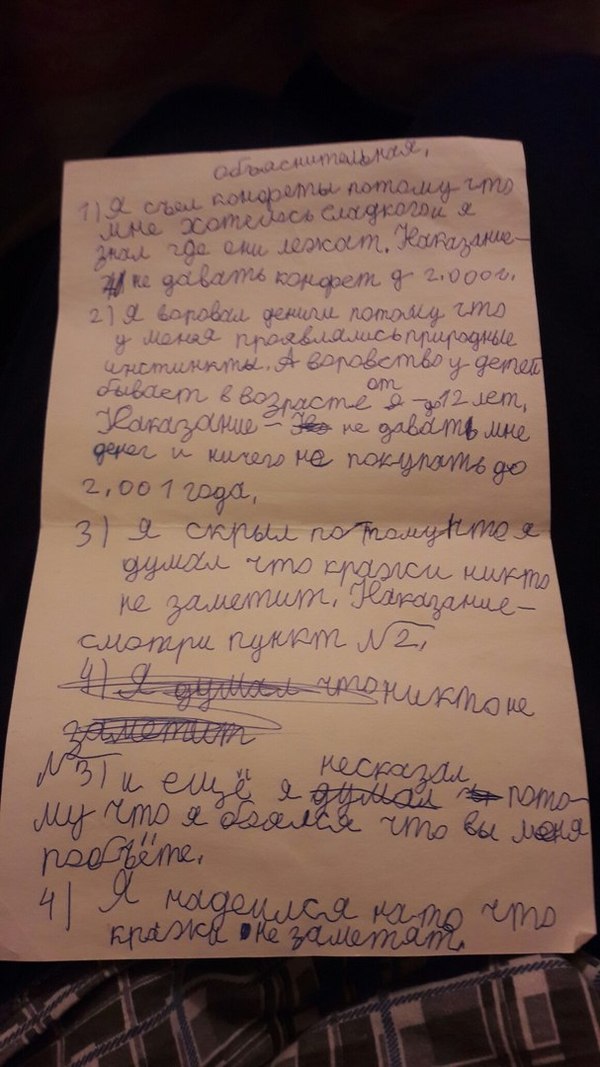 объяснительная.
1) Я съел конфеты потому что
мне хотелось сладкого и я
знал где они лежат. Наказание-
не давать конфет д 2.000г.
2) Я воровал деньги потому что
у меня проявлялись природные
инстинкты. А воровство у детей
бывает в возрасте от я - до 12 лет.
Наказание - не давать мне
денег и ничего не покупать до
2.001 года.
3) Я скрыл по тому что я
думал что кражи никто
не заметит. Наказание-
смотри пункт №2.
4) Я думал что никто не
заметит
№3) и ещё я несказал пото-
му что я боялся что вы меня
побъёте.
4) Я надеился на то что
кражи не заметят.